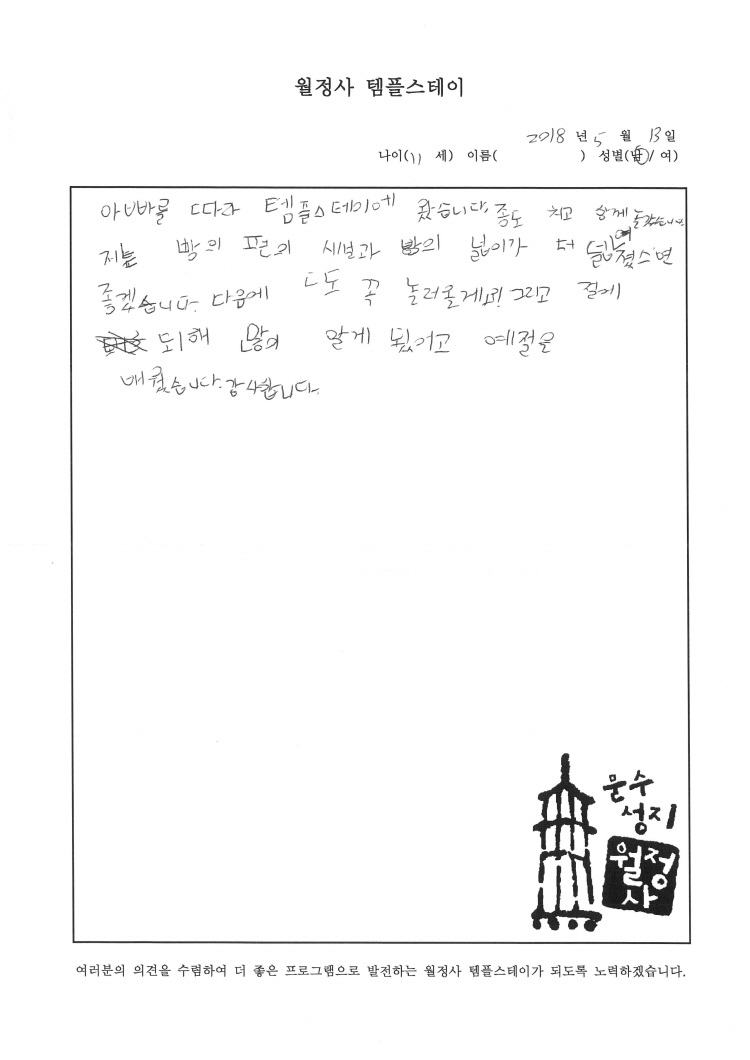 월정사 템플스테이
2018 년 5 월 13 일
나이(11 세) 이름( ) 성별(남 / 여)
아빠를 따라 템플스테이에 왔습니다. 종도 치고
방의 편의 시설과 방의 넓이가 더 넓여졌스면
좋겠습니다. 다음에 또 꼭 놀러올게요! 그리고 절에
되해 많이 알게 됬어고 예절을
배웠습니다. 감사합니다.
문수
성지
월정
사
여러분의 의견을 수렴하여 더 좋은 프로그램으로 발전하는 월정사 템플스테이가 되도록 노력하겠습니다.